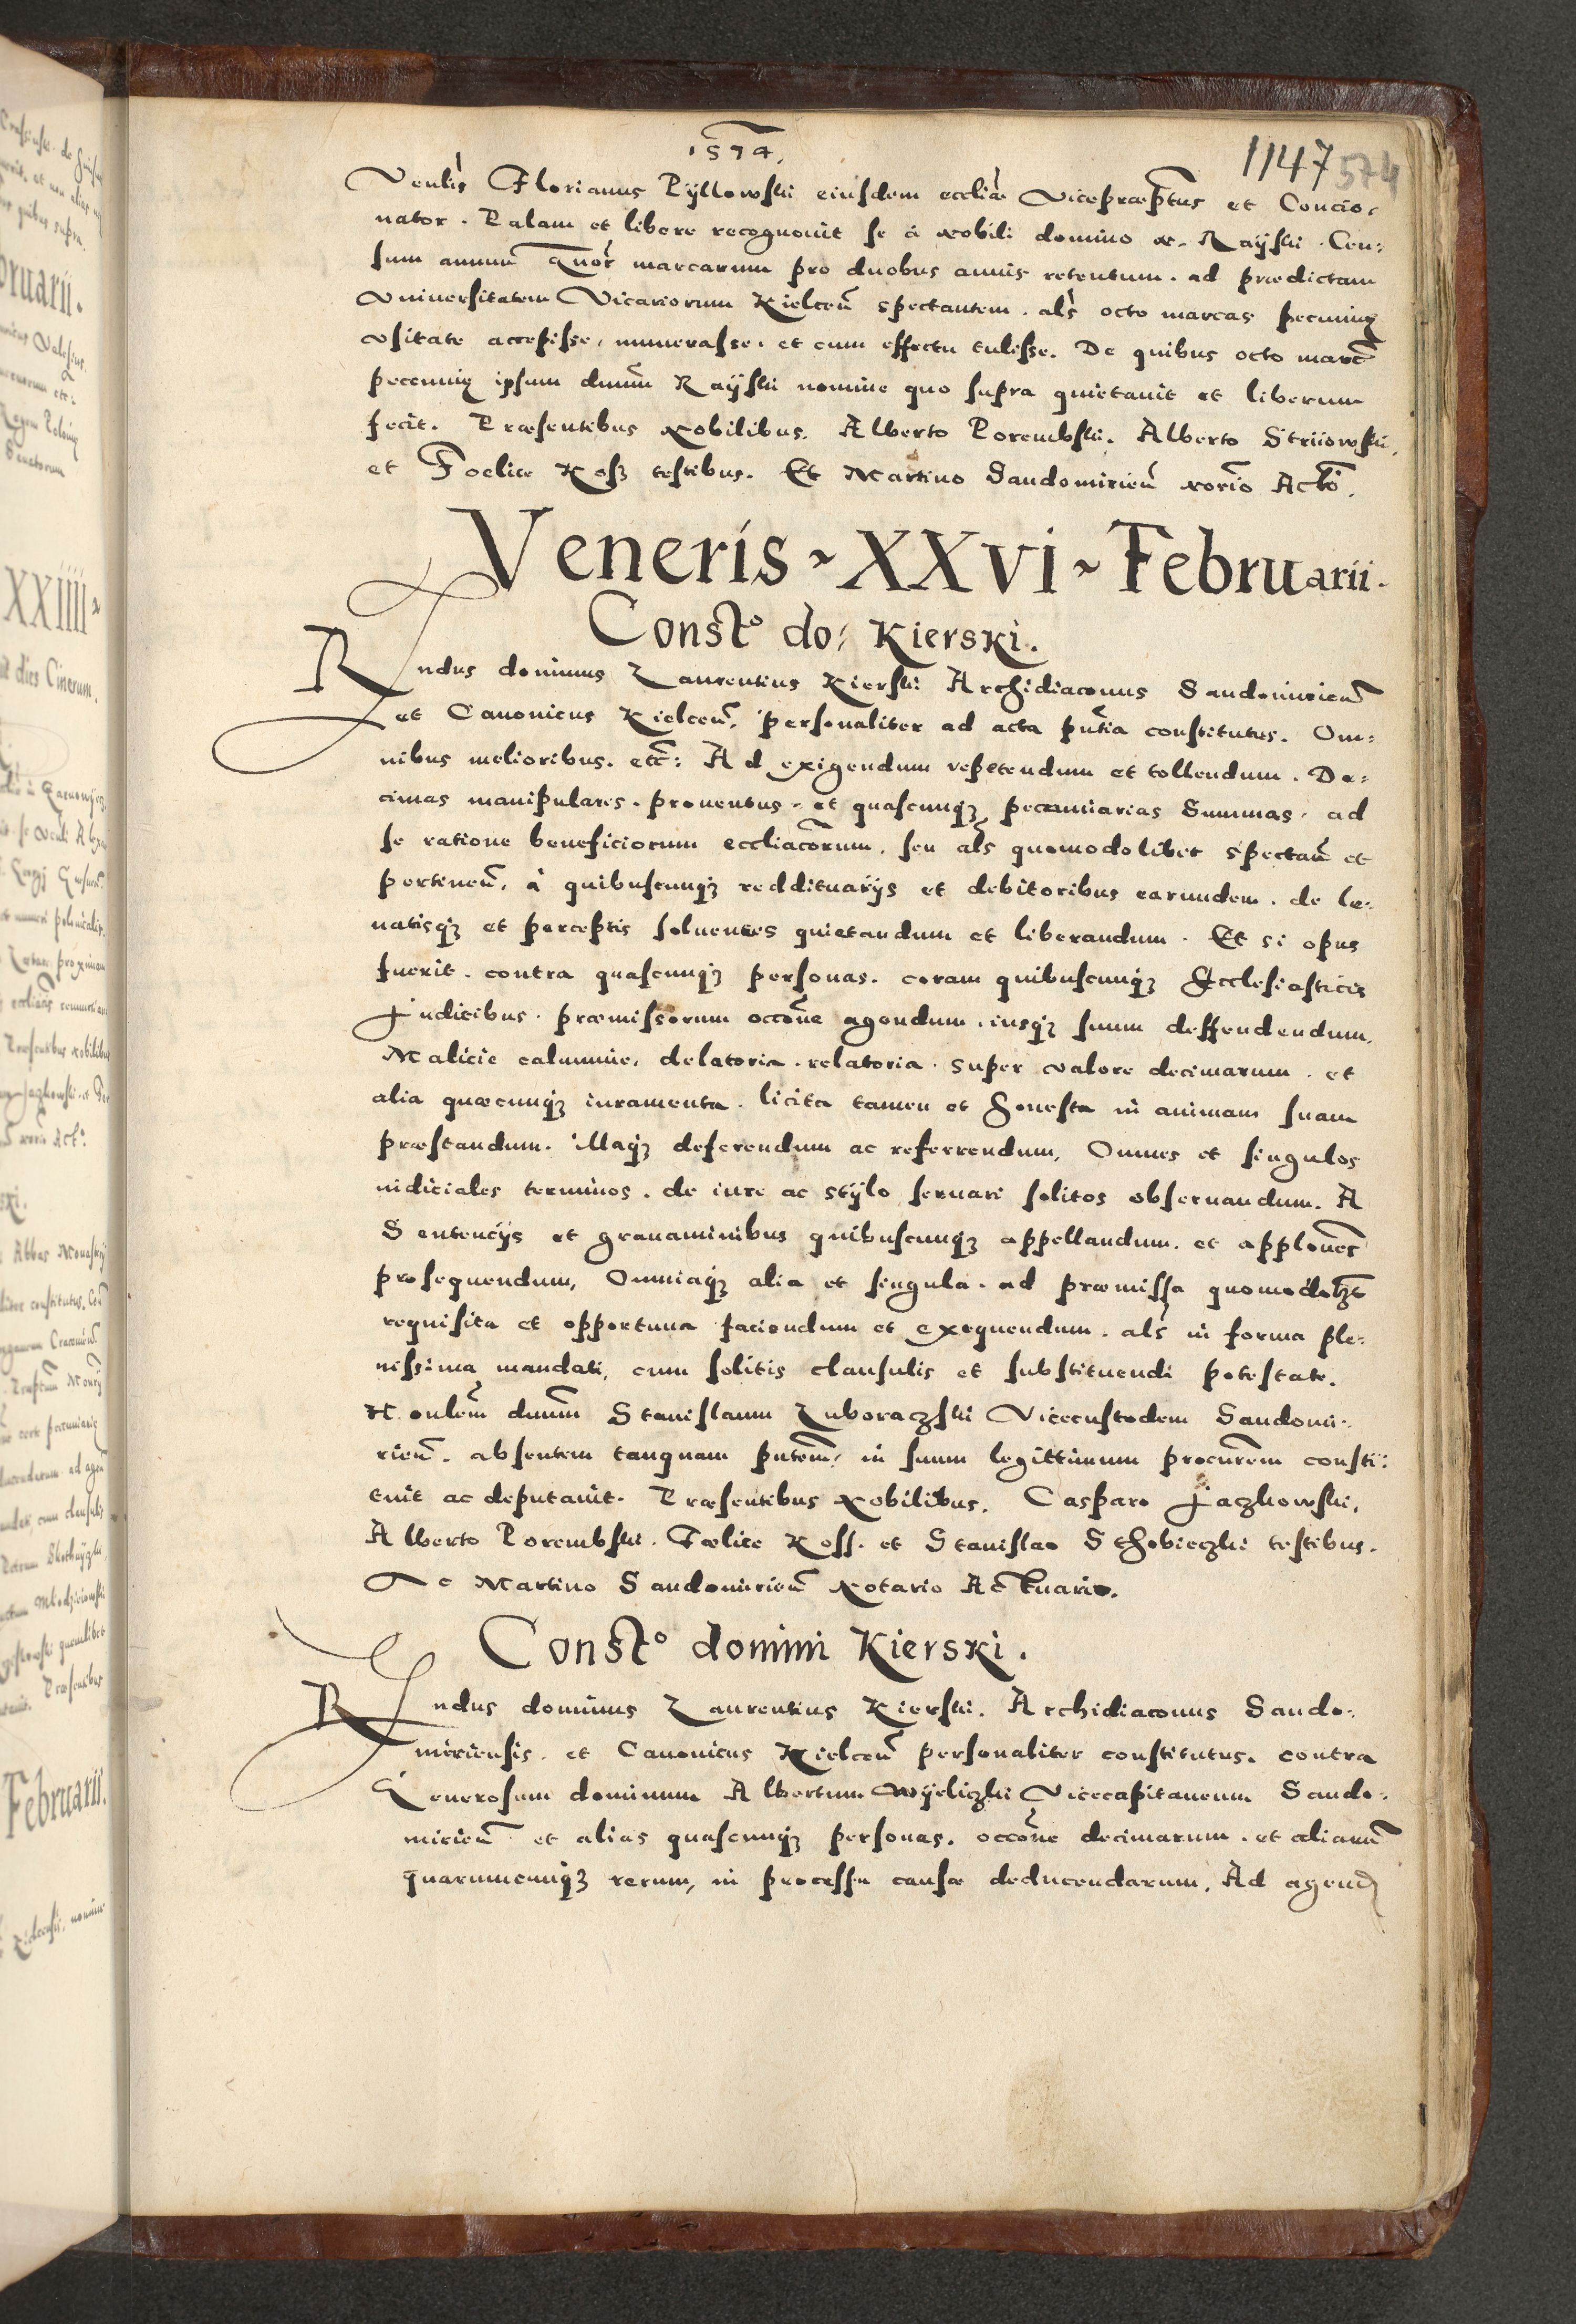 1574.
1147 574
Venlis Florianus Pyllowski eiusdem eccliæ Vicepræptus et Concio,
nator. Palam et libere recognouit se à nobili domino N. Rayski. Cen:
sum annuū quor marcarum pro duobus annis retentum. ad prædictam
Vniuersitatem Vicariorum Kielceñ spectantem. als octo marcas pecunię
vsitate accepisse, numerasse, et cum effectu tulisse. De quibus octo marc
pecunię ipsum dnum Rayski nomine quo supra quietauit et liberum
fecit. Præsentibus Nobilibus. Alberto Porembski. Alberto Striiowski,
et Foelice Kosz testibus. Et Martino Sandomirieñ norio Acto.
Veneris ~ XXVI ~ Februarii.
Constõ do: Kierski.
Rndus dominus Laurentius Kierski Archidiaconus Sandomirieñ
et Canonicus Kielceñ, personaliter ad acta pñtia constitutus. Om:
nibus melioribus. etc: Ad exigendum repetendum et tollendum. De:
cimas manipulares. prouentus. et quascunqz pecuniarias Summas. ad
se ratione beneficiorum eccliacorum, seu als quomodolibet spectañ et
pertineñ, à quibuscunqz reddituarijs et debitoribus earundem. de le:
uatisqz et perceptis soluentes quietandum et liberandum. Et si opus
fuerit. contra quascunqz personas. coram quibuscunqz Ecclesiasticis
Judicibus. præmissorum occone agendum. iusqz suum deffendendum,
Malicie calumnie, delatoria. relatoria. super valore decimarum. et
alia quæcunqz iuramenta. licita tamen et honesta in animam suam
præstandum. illaqz deferendum ac referrendum, Omnes et singulos
iudiciales terminos. de iure ac stÿlo seruari solitos obseruandum. A
Sentencijs et grauaminibus quibuscunqz appellandum. et applones
prosequendum, Omniaqz alia et singula. ad præmissa quomodolzt
requisita et opportuna faciendum et exequendum. als in forma ple:
nissima mandati, cum solitis clausulis et substituendi potestate.
Honlem dnum Stanislaum Zuboraczski Vicecustodem Sandomi:
rieñ. absentem tanquam pñtem, in suum legittimum procurem consti:
tuit ac deputauit. Præsentibus Nobilibus. Casparo Jaczkowski,
Alberto Porembski. Fœlice Koss. et Stanislao Sthobieczki testibus.
Ac Martino Sandomirieñ Notario Actuario.
Constõ domini Kierski.
Rndus dominus Laurentius Kierski. Archidiaconus Sando:
miriensis. et Canonicus Kielceñ personaliter constitutus. contra
Generosum dominum Albertum Wyeliczki Vicecapitaneum Sando:
mirieñ et alias quascunqz personas. occone decimarum. et aliarũ
quarumcunqz rerum, in processu causæ deducendarum, Ad agend